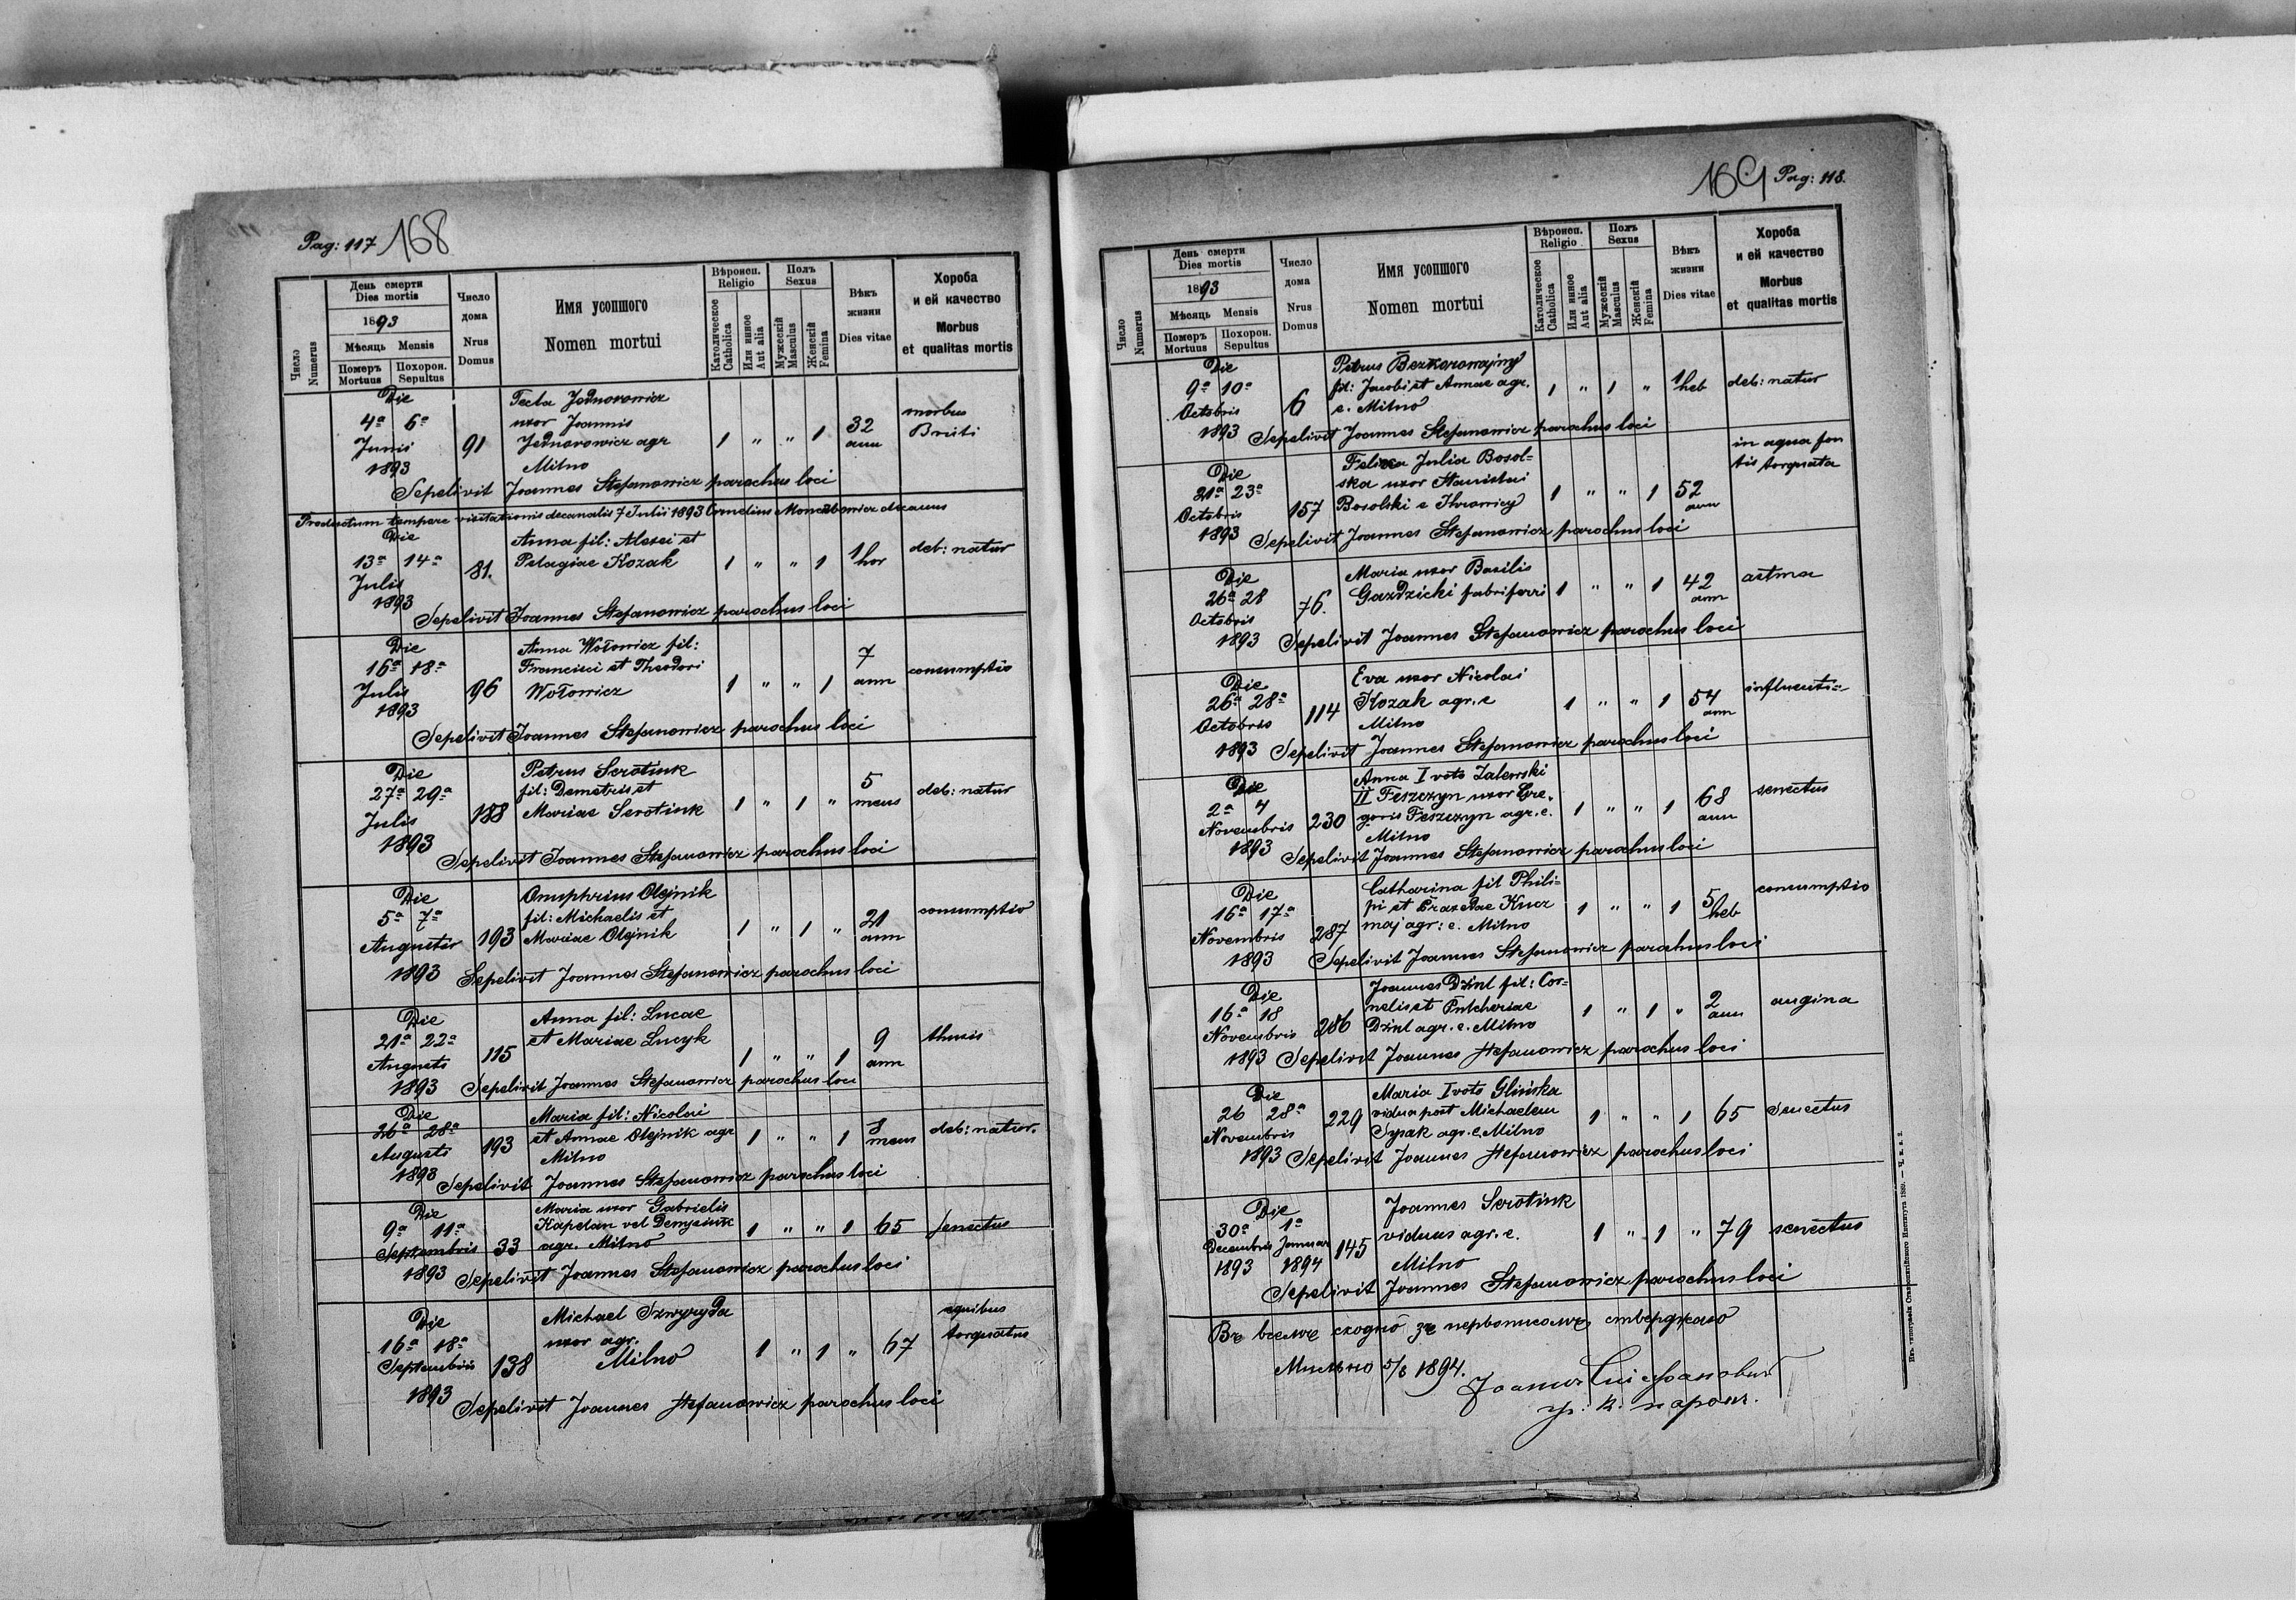 Pag: 117 168
Число
Numerus
День смерти
Dies mortis
1893
Мѣсяць Mensis
Померъ
Mortuus
Похорон.
Sepultus
Число
дома
Nrus
Domus
Имя усопшого
Nomen mortui
Вѣроисп.
Religio
Католическое
Catholica
Или инное
Aut alia
Полъ
Sexus
Мужескій
Masculus
Женскій
Femina
Вѣкъ
жизни
Dies vitae
Хороба
и ей качество
Morbus
et qualitas mortis
Die
4ª 6ª
Junii
1893
91
Tecla Jednorowicz
uxor Joannis
Jednorowicz agr
Milno
1 " " 1
32
ann
morbus
Briiti
Sepelivit Joannes Stefanowicz parochus loci
Productum tempore visitationis decanalis 7 Julii 1893 Cornelius decanus
Die
13ª 14ª
Julii
1893
81.
Anna fil: Alexei et
Pelagiae Kozak
1 " " 1
1
hor
deb: natur
Sepelivit Joannes Stefanowicz parochus loci
Die
16ª 18ª
Julii
1893
96
Anna Wołowicz fil:
Francisci et Theodori
Wołowicz
1 " " 1
7
ann
consumptio
Sepelivit Joannes Stefanowicz parochus loci
Die
27ª 29ª
Julii
1893
188
Petrus Serotiuk
fil: Demetrii et
Mariae Serotiuk
1 " 1 "
5
mens
deb: natur
Sepelivit Joannes Stefanowicz parochus loci
Die
5ª 7ª
Augusti
1893
193
Onuphrius Olejnik
fil: Michaelis et
Mariae Olejnik
1 " 1 "
21
ann
consumptio
Sepelivit Joannes Stefanowicz parochus loci
Die
21ª 22ª
Augusti
1893
115
Anna fil: Lucae
et Mariae Lucyk
1 " " 1
9
ann
thusis
Sepelivit Joannes Stefanowicz parochus loci
Die
26ª 28ª
Augusti
1893
193
Maria fil: Nicolai
et Annae Olejnik agr
Milno
1 " " 1
8
mens
deb: natur.
Sepelivit Joannes Stefanowicz parochus loci
Die
9ª 11ª
Septembris
1893
33
Maria uxor Gabrielis
Kapelan vel Denysiuk
agr. Milno
1 " " 1
65
senectus
Sepelivit Joannes Stefanowicz parochus loci
Die
16ª 18ª
Septembris
1893
138
Michael Szwyryda
uxor agr.
Milno
1 " 1 "
67
equibus
torquatus
Sepelivit Joannes Stefanowicz parochus loci
169 Pag: 118.
Число
Numerus
День смерти
Dies mortis
1893
Мѣсяць Mensis
Померъ
Mortuus
Похорон.
Sepultus
Число
дома
Nrus
Domus
Имя усопшого
Nomen mortui
Вѣроисп.
Religio
Католическое
Catholica
Или инное
Aut alia
Полъ
Sexus
Мужескій
Masculus
Женскій
Femina
Вѣкъ
жизни
Dies vitae
Хороба
и ей качество
Morbus
et qualitas mortis
Die
9ª 10ª
Octobris
1893
6
Petrus Bezkorowajnyj
fil: Jacobi et Annae agr.
e. Milno
1 " 1 "
1
heb
deb: natur
Sepelivit Joannes Stefanowicz parochus loci
Die
21ª 23ª
Octobris
1893
157
Felixa Julia Bosol=
ska uxor Stanislai
Bosolski e
1 " " 1
52
ann
in aqua fon
tis torquata
Sepelivit Joannes Stefanowicz parochus loci
Die
26ª 28
Octobris
1893
76.
Maria uxor Basilis
Gazdzicki fabri ferri
1 " " 1
42
ann
astma
Sepelivit Joannes Stefanowicz parochus loci
Die
26ª 28ª
Octobris
1893
114
Eva uxor Nicolai
Kozak agr. e
Milno
1 " " 1
54
ann
influenti=
Sepelivit Joannes Stefanowicz parochus loci
Die
2ª 4
Novembris
1893
230
Anna I voto Zalewski
II Feszczyn uxor Gre.
goris Feszczyn agr. e.
Milno
1 " " 1
68
ann
senectus
Sepelivit Joannes Stefanowicz parochus loci
Die
16ª 17ª
Novembris
1893
287
Catharina fil Phili=
pi et Praxedae Kucz
maj agr: e. Milno
1 " " 1
5
heb
consumptio
Sepelivit Joannes Stefanowicz parochus loci
Die
16ª 18
Novembris
1893
286
Joannes Dziul fil: Cor=
nelii et Pulcheriae
Dziul agr. e. Milno
1 " 1 "
2
ann
angina
Sepelivit Joannes Stefanowicz parochus loci
Die
26 28ª
Novembris
1893
229
Maria I voto Glińska
vidua post Michaelem
Sysak agr. e. Milno
1 " " 1
65
senectus
Sepelivit Joannes Stefanowicz parochus loci
Die
30ª 1ª
Decembris Januar
1893 1894
145
Joannes Serotiuk
viduus agr. e.
Milno
1 " 1 "
79
senectus
Sepelivit Joannes Stefanowicz parochus loci
Въ всемъ сходно зъ первописомъ стверджаю
Мильно 5/8 1894.
Іоаннъ Стефановичъ
гр. к. парохъ.
Изъ типографіи Ставропигійского Института 1889.